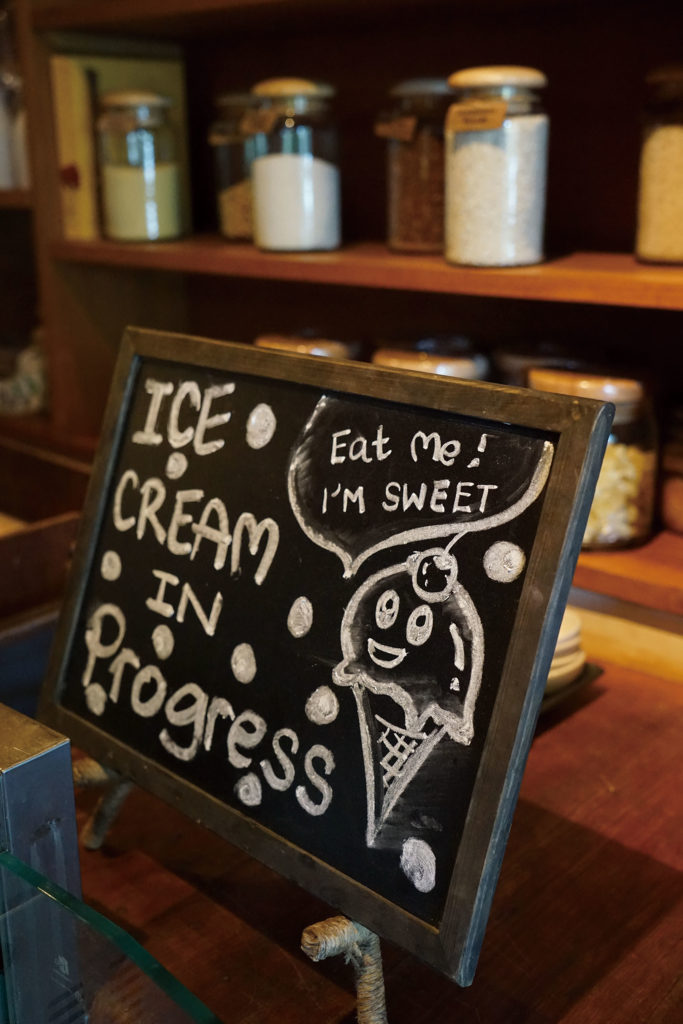 ICE
CREAM
IN
Progress
Eat Me!
I'M SWEET